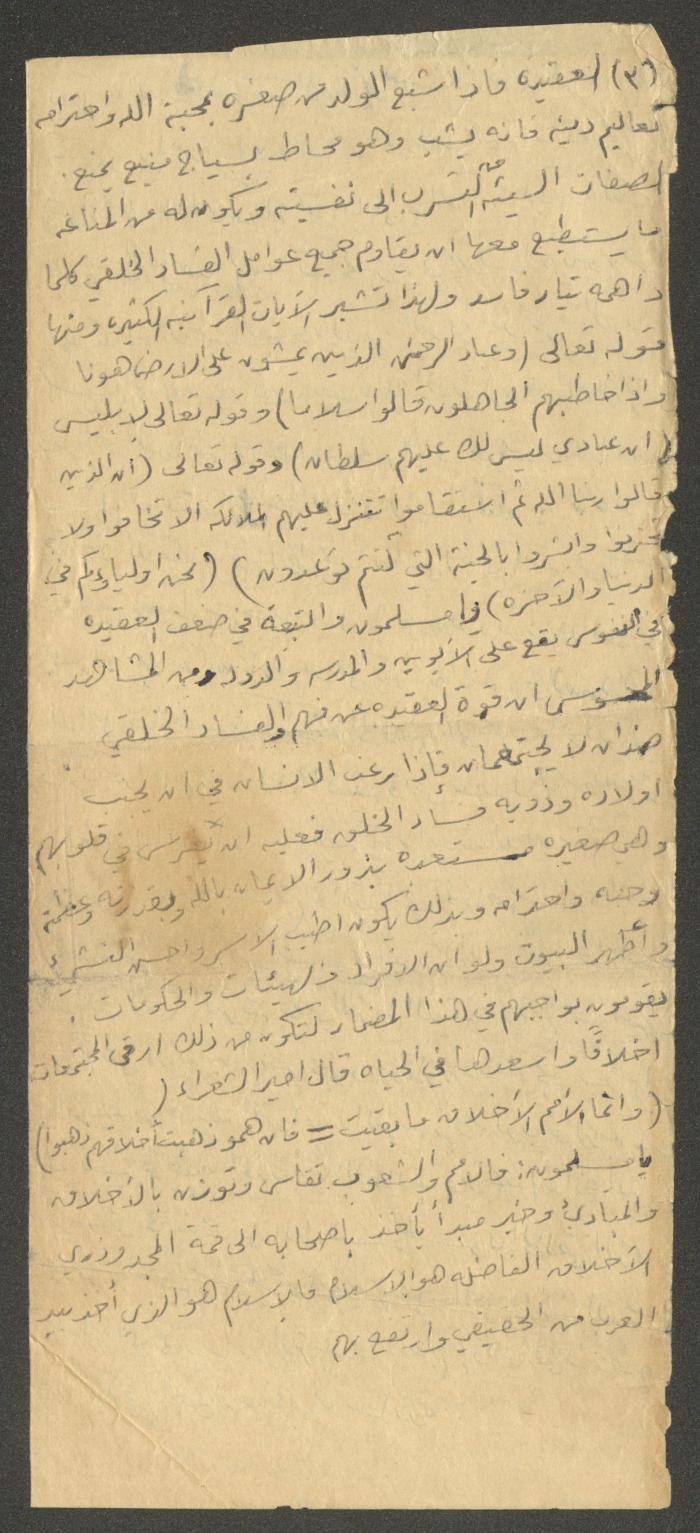 (٣) العقيده فاذا شبع الولد من صغره بمحبة الله واحترامه
تعاليم دينه فانه يشب وهو محاط بسياج منيع يمنع
الصفات السيئه من التسرب الى نفسيته ويكون له من المناعه
ما يستطيع معها ان يقاوم جميع عوامل الفساد الخلقي كلما
داهمه تيار فاسد ولهذا تشير الآيات القرآنيه الكثيره ومنها
قوله تعالى (وعباد الرحمن الذين يمشون على الارض هونا
واذا خاطبهم الجاهلون قالوا سلاما) وقوله تعالى لابليس
ان عبادي ليس لك عليهم سلطان) وقوله تعالى (ان الذين
قالوا ربنا الله ثم استقاموا تتنزل عليهم الملائكه الا تخافوا ولا
تحزنوا وابشروا بالجنة التي كنتم توعدون) (نحن اولياؤكم في
الدنيا والآخره) يا مسلمون والتبعة في ضعف العقيده
في النفوس يقع على الأبوين والمدرسه والدوله ومن المشاهد
المحسوس ان قوة العقيده عن فهم والفساد الخلقي
ضدان لا يجتمعان فإذا رغب الانسان في ان يجنب
اولاده وذويه فساد الخلق فعليه ان يغرس في قلوبهم
وهي صغيره مستعده بذور الايمان بالله وبقدرته وعظمته
وحبه واحترامه وبذلك يكون اطيب الاسر واحسن النشيء
وأطهر البيوت ولو ان الافراد والهيئات والحكومات
يقومون بواجبهم في هذا المضمار لتكون من ذلك ارقى المجتمعات
اخلاقًا واسعدها في الحياه قال امير الشعراء (
(وانما الأمم الأخلاق ما بقيت = فان همو ذهبت أخلاقهم ذهبوا)
يا مسلمون: فالامم والشعوب تقاس وتوزن بالأخلاق
والمبادئ وخير مبدأ يأخذ باصحابه الى قمة المجد وذرى
الأخلاق الفاضله هو الاسلام فالاسلام هو الذي أخذ بيد
العرب من الحضيض وارتفع بهم